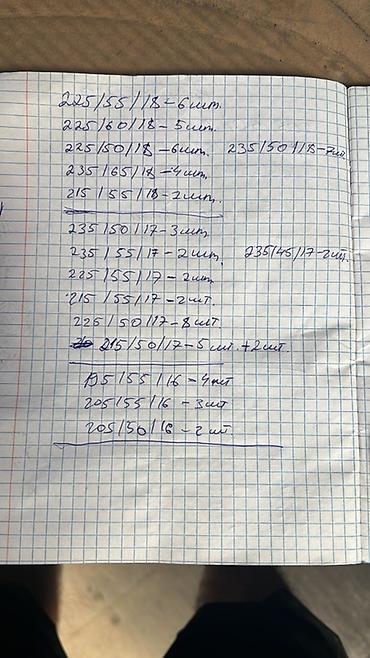 225/55/18 – 6 шт.
225/60/18 – 5 шт.
225/50/18 – 6 шт. 235/50/18 –
235/65/18 – 4 шт.
215/55/18 – 2 шт.
235/50/17 – 3 шт.
235/55/17 – 2 шт. 235/45/17 – 2 шт.
225/55/17 – 2 шт
215/55/17 – 2 шт
225/50/17 – 8 шт
215/50/17 – 5 шт. + 2 шт.
195/55/16 – 4 шт
205/55/16 – 3 шт
205/50/16 – 2 шт.